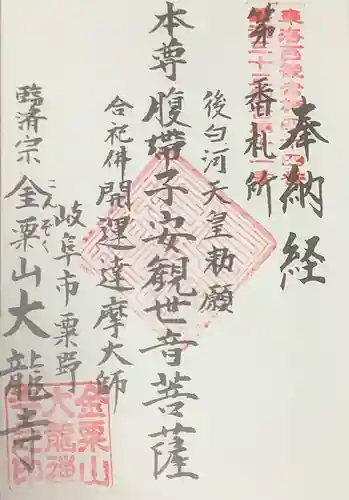 奉納経
第 番札所
後白河天皇勅願
本尊腹帯子安観世音菩薩
合祀佛開運達摩大師
岐阜市粟野
臨済宗金粟山大龍寺
こんぞく
金粟山
大龍禅